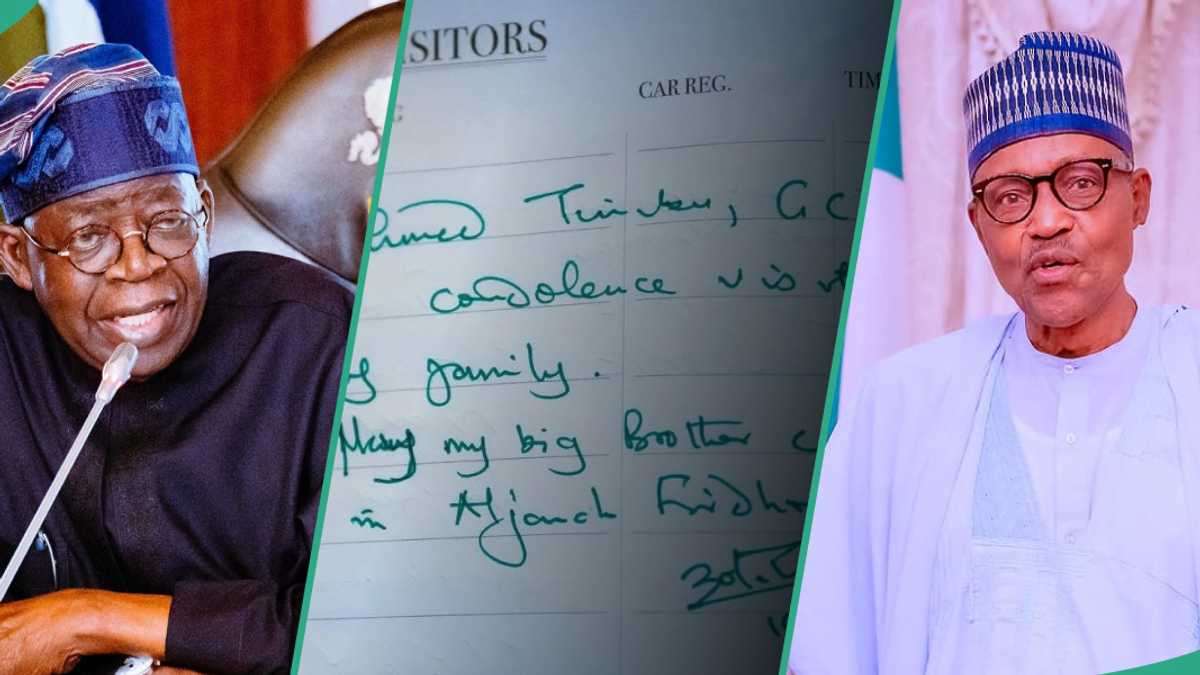 ISITORS
CAR REG.
TIM
G
Ahmed Tinubu, GC
condolence visit
family.
May my big Brother
in Aljanah Firdha